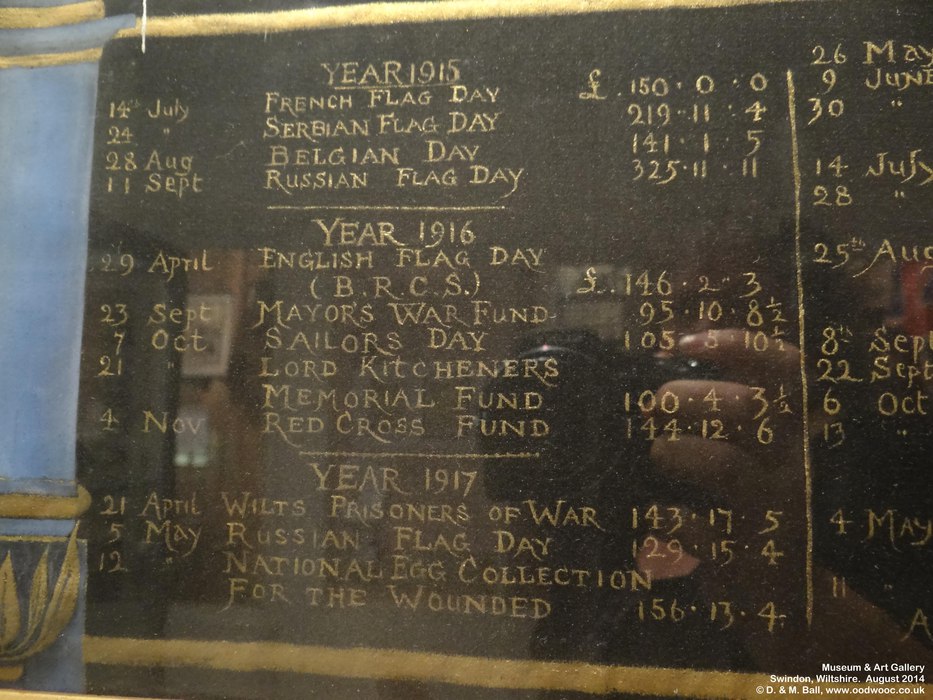 YEAR 1915
14th July FRENCH FLAG DAY £. 150 · 0 · 0
24 " SERBIAN FLAG DAY 219 · 11 · 4
28 Aug BELGIAN DAY 141 · 1 · 5
11 Sept RUSSIAN FLAG DAY 325 · 11 · 11
YEAR 1916
29 April ENGLISH FLAG DAY
(B.R.C.S.) £. 146 · 2 · 3
23 Sept MAYORS WAR FUND 95 · 10 · 8½
7 Oct SAILORS DAY 105 · 8 · 10½
21 " LORD KITCHENERS
MEMORIAL FUND 100 · 4 · 3½
4 Nov RED CROSS FUND 144 · 12 · 6
YEAR 1917
21 April WILTS PRISONERS OF WAR 143 · 17 · 5
5 May RUSSIAN FLAG DAY 129 · 15 · 4
12 " NATIONAL EGG COLLECTION
FOR THE WOUNDED 156 · 13 · 4
26 May
9 JUNE
30 "
14 July
28 "
25th Aug
8th Sept
22 Sept
6 Oct
13 "
4 May
11 "
A
Museum & Art Gallery
Swindon, Wiltshire. August 2014
© D. & M. Ball, www.oodwooc.co.uk